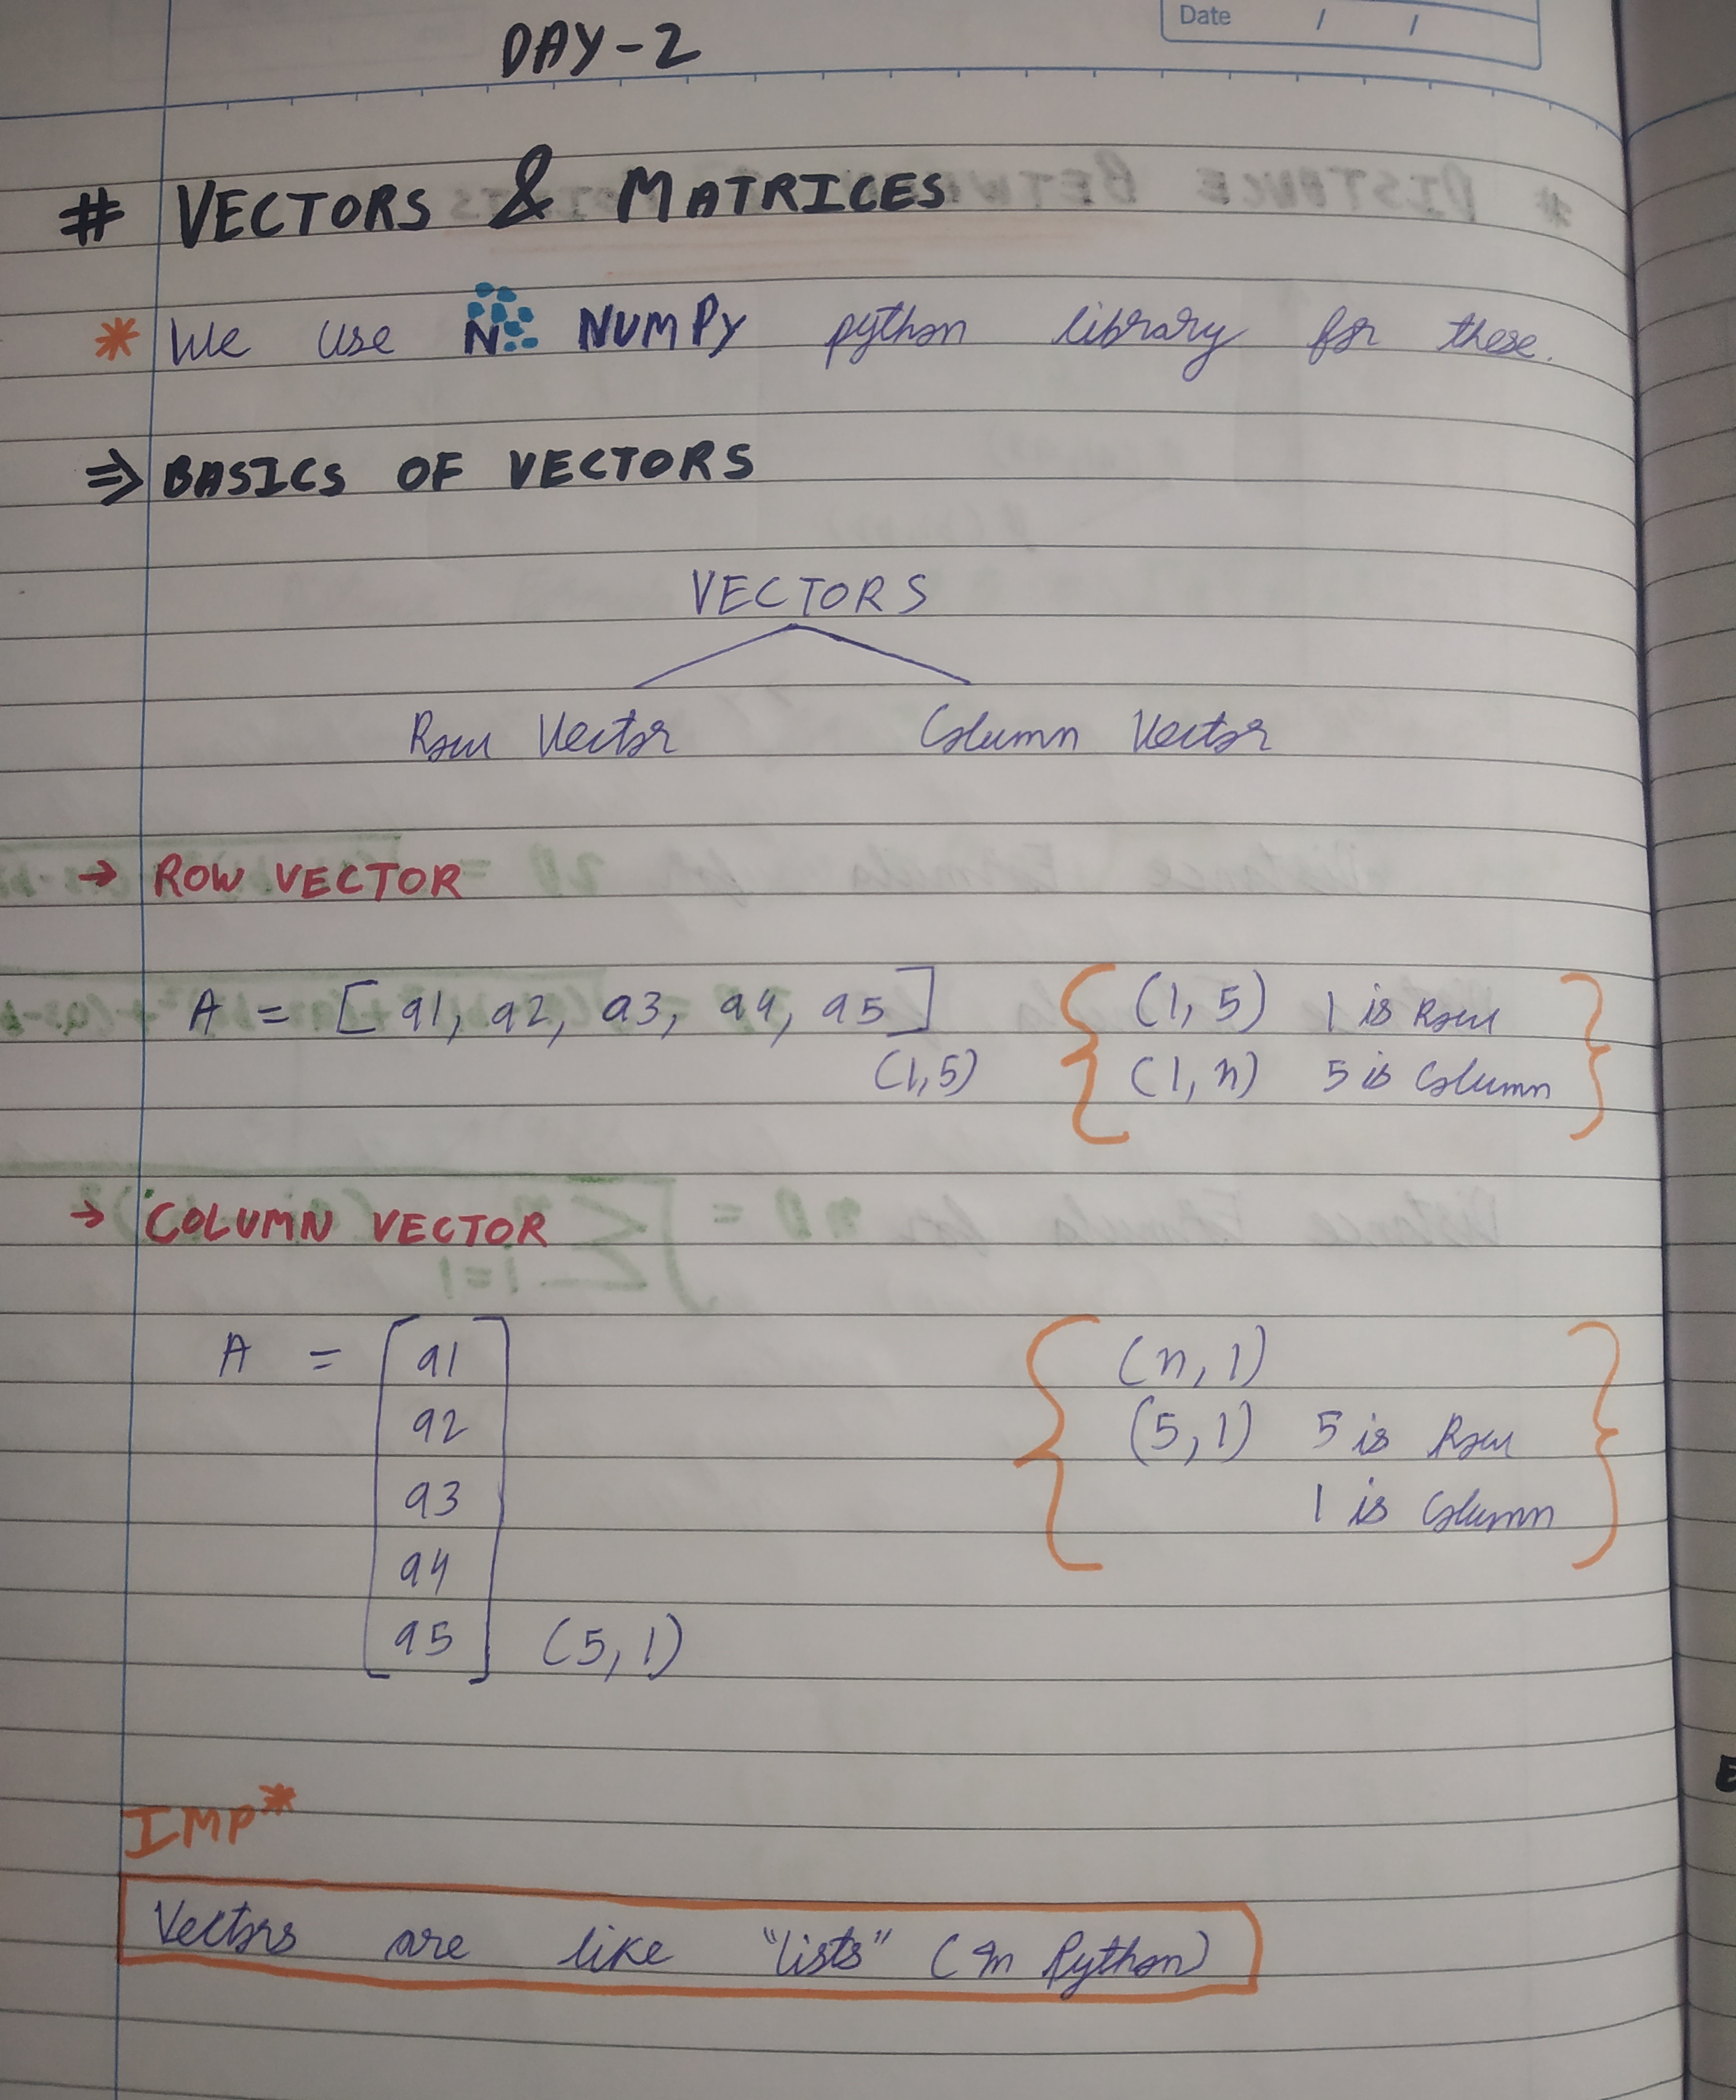 Date / /
DAY-2
# VECTORS & MATRICES
* We use N NUMPY python library for these.
⇒ BASICS OF VECTORS
VECTORS
Row Vector Column Vector
→ ROW VECTOR
A = [a1, a2, a3, a4, a5] { (1, 5) 1 is Row }
(1,5) (1, n) 5 is Column
→ COLUMN VECTOR
A = [a1 { (n, 1) }
a2 (5, 1) 5 is Row
a3 1 is Column
a4
a5] (5, 1)
IMP*
Vectors are like "lists" (In Python)